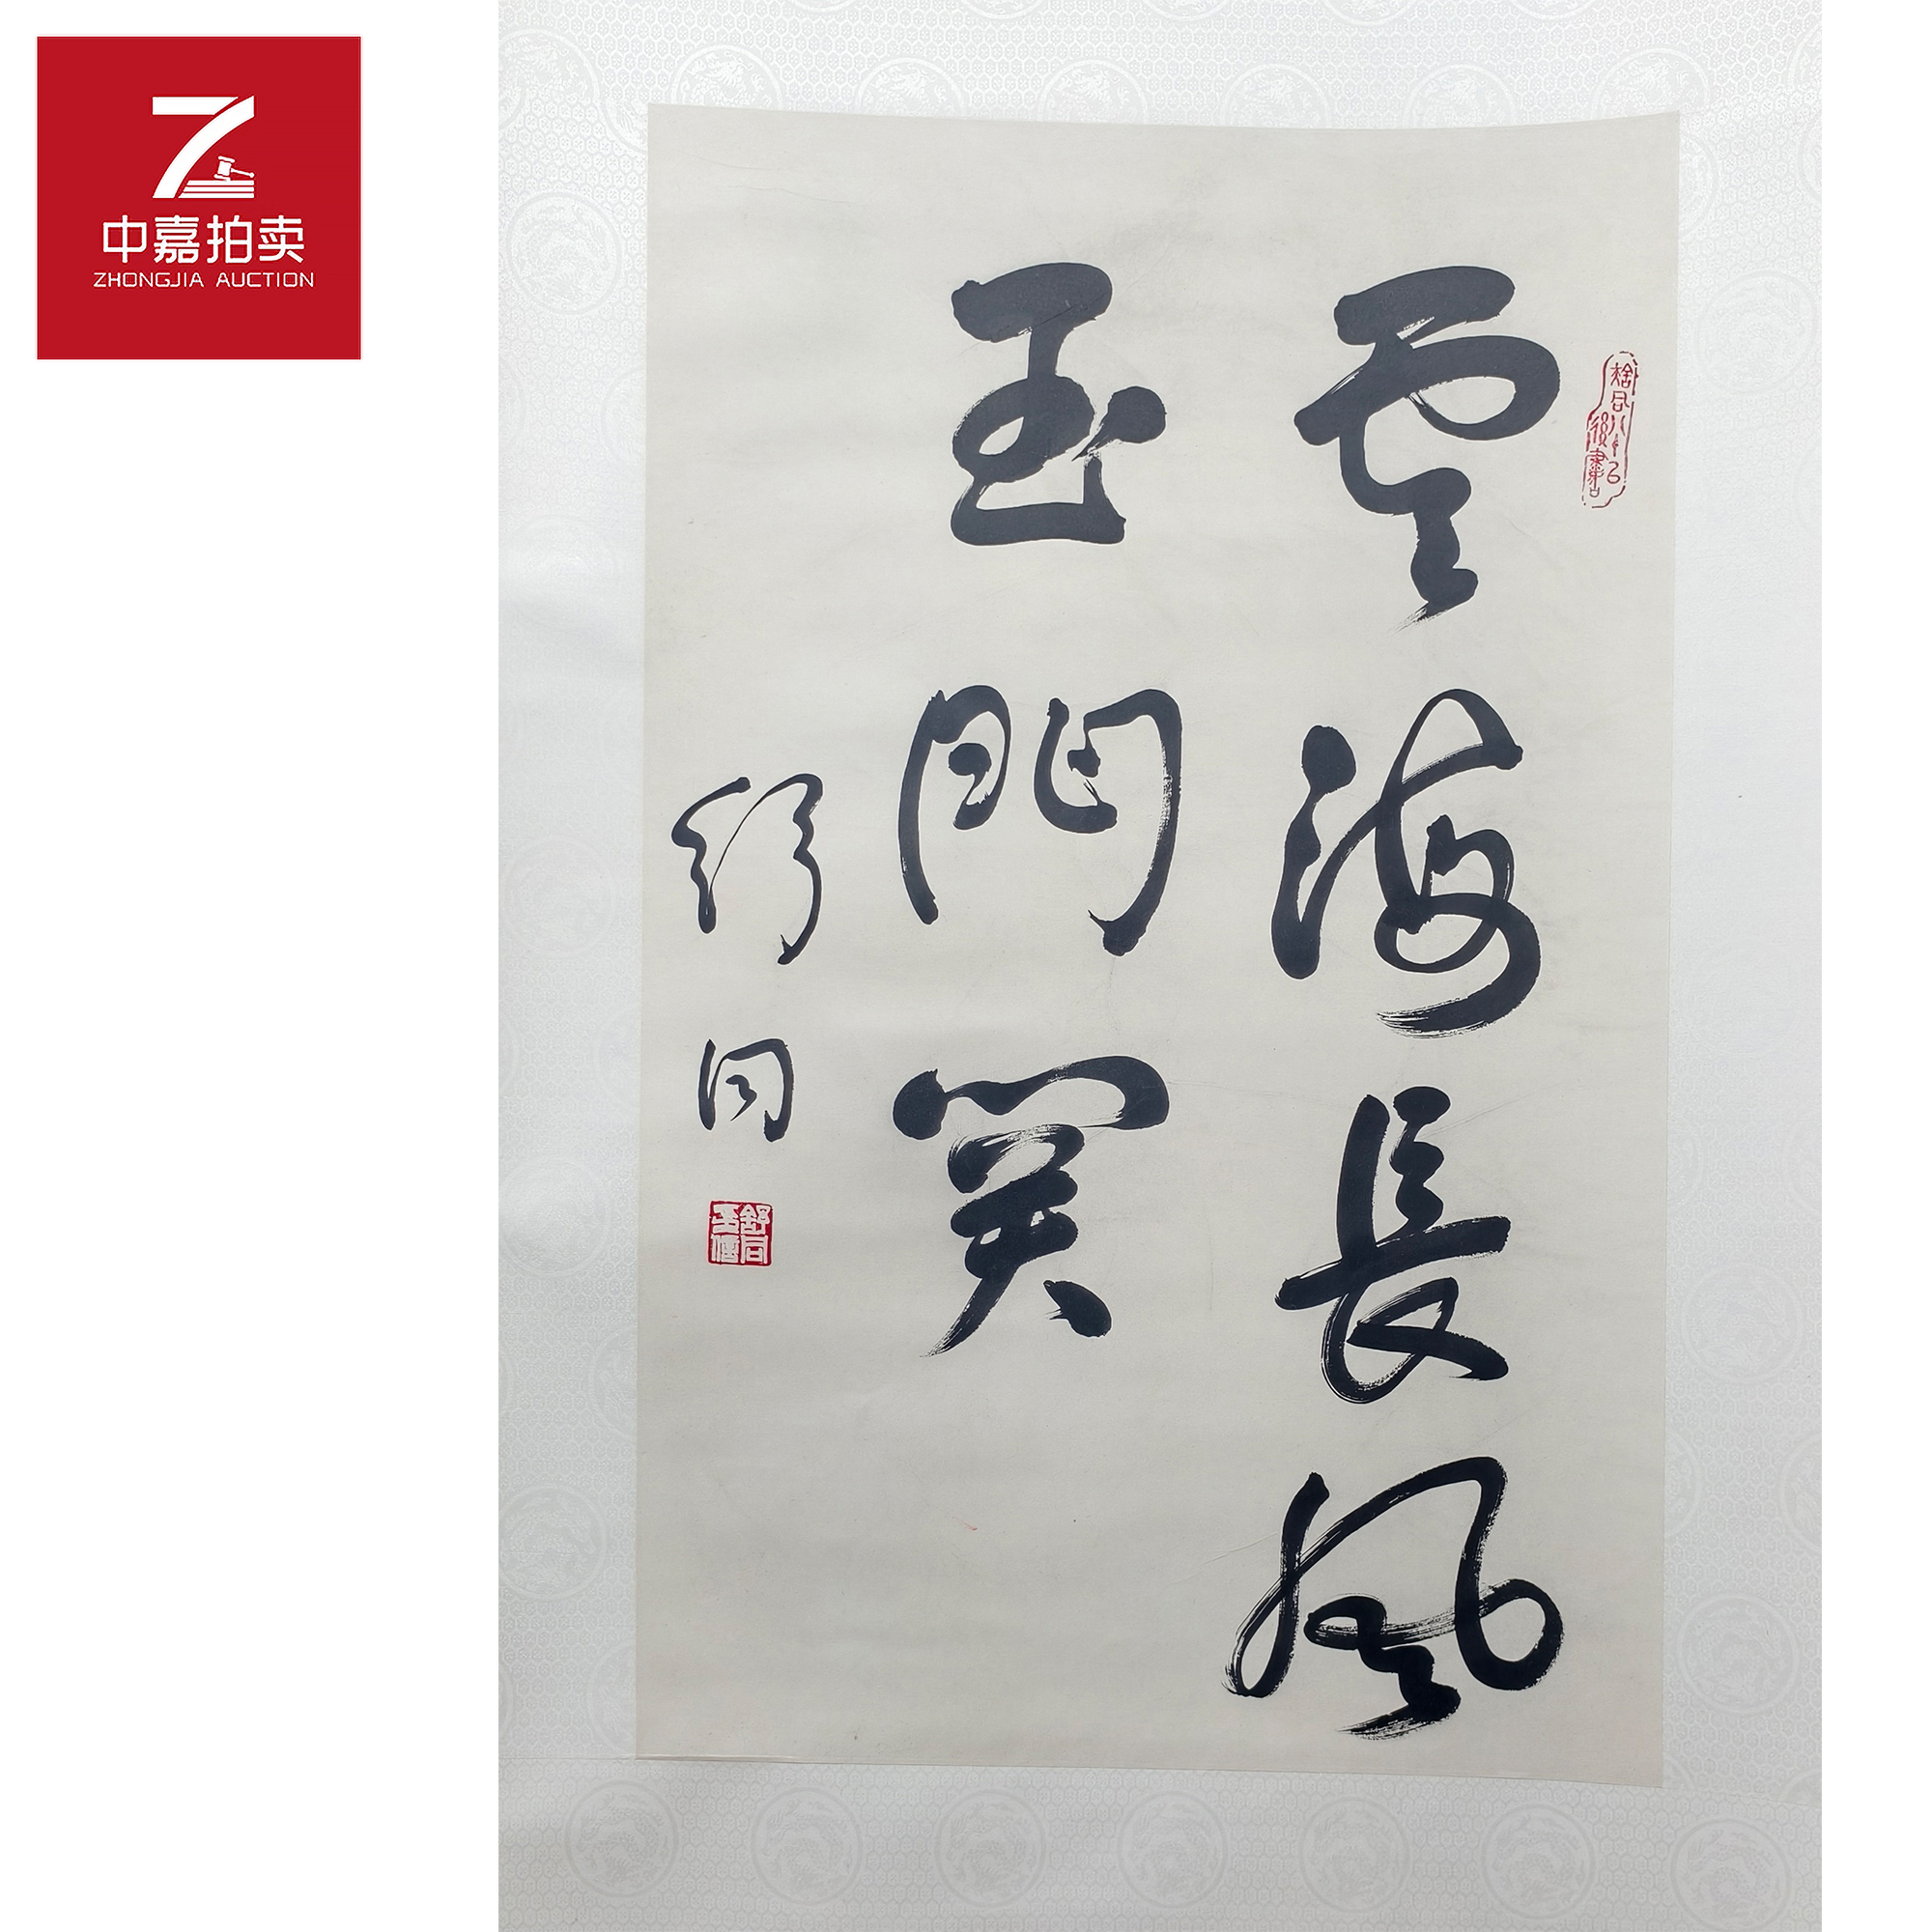 中嘉拍卖
ZHONGJIA AUCTION
雲海長風
玉門関
舒同
舒同